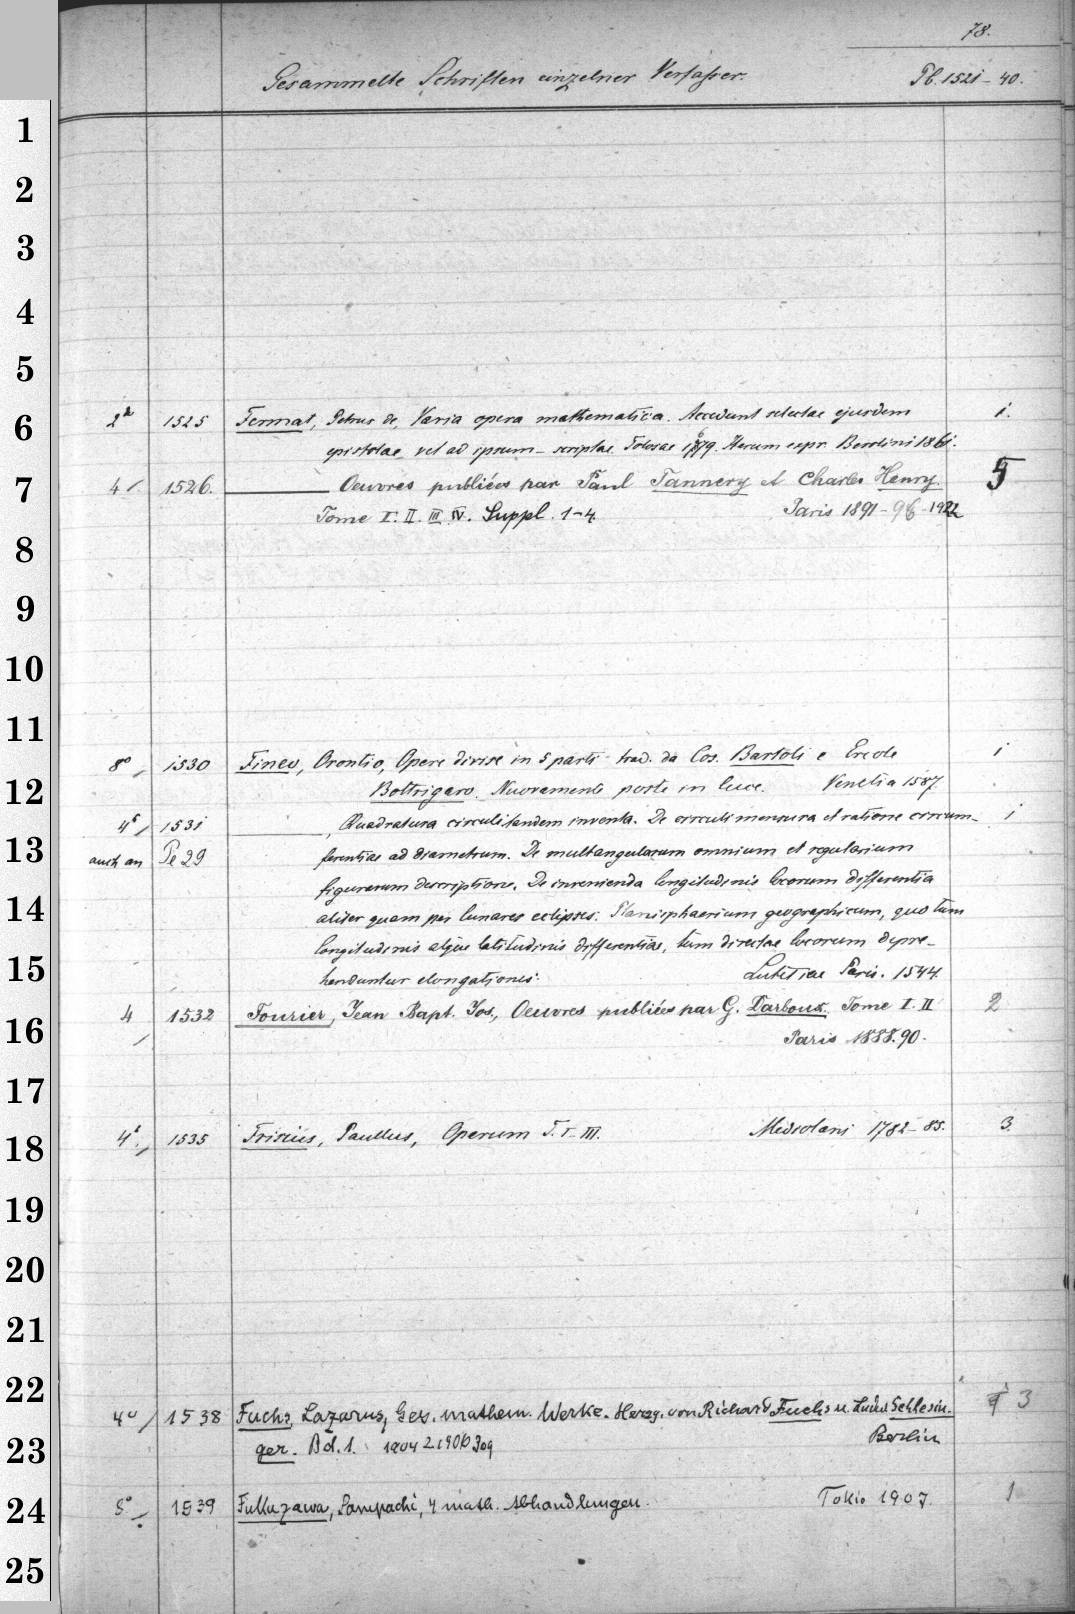 78.
Gesammelte Schriften einzelner Verfasser.
Pb. 1521–40.
1
2
3
4
5
6
2° 1525 Fermat, Petrus de, Varia opera mathematica. Accedunt selectae ejusdem 1.
epistolae vel ad ipsum scriptae. Tolosae 1679. Iterum expr. Berolini 1861.
7
4 1526. Oeuvres publiées par Paul Tannery et Charles Henry. 5
Tome I. II. III IV. Suppl. 1–4. Paris 1891–96–1922
8
9
10
11
8° 1530 Fineo, Orontio, Opere divise in 5 parti trad. da Cos. Bartoli e Ercole 1
12
Bottrigaro. Nuovamente poste in luce. Venetia 1587
4° 1531 , Quadratura circuli tandem inventa. De circuli mensura et ratione circum- 1
13
auch an Pe 29 ferentiae ad diametrum. De multangularum omnium et regularium
figurarum descriptione. De invenienda longitudinis locorum differentia
14
aliter quam per lunares eclipses. Planisphaerium geographicum, quo tum
longitudinis atque latitudinis differentiae, tum directae locorum depre-
15
henduntur elongationes. Lutetiae Paris. 1544.
4 1532 Fourier, Jean Bapt. Jos., Oeuvres publiées par G. Darboux. Tome I. II 2
16
Paris 1888.90.
17
18
4° 1535 Frisius, Paullus, Operum T. I–III. Mediolani 1782–85. 3.
19
20
21
22
4° 1538 Fuchs, Lazarus, Ges. mathem. Werke. Herzg. von Richard Fuchs u. Ludw. Schlesin- 3
23
ger. Bd. 1. 1904 2 1906 3 09 Berlin
24
8° 1539 Fukuzawa, Sampachi, 4 math. Abhandlungen. Tokio 1907. 1
25